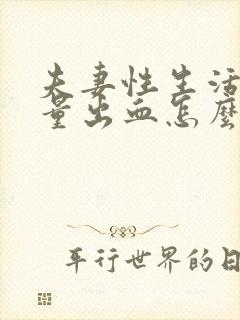 夫妻性生活
量出血怎麼
平行世界的日